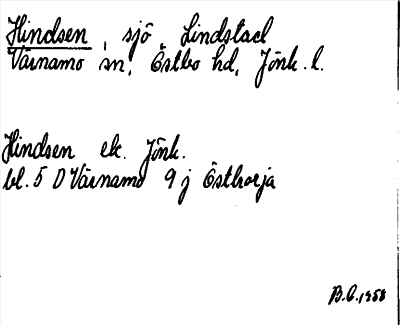 Hindsen, sjö, Lindstad
Värnamo sn, Östbo hd, Jönk. l.
Hindsen ek. Jönk.
bl. 5 D Värnamo 9 j Östhorja
B.O. 1958